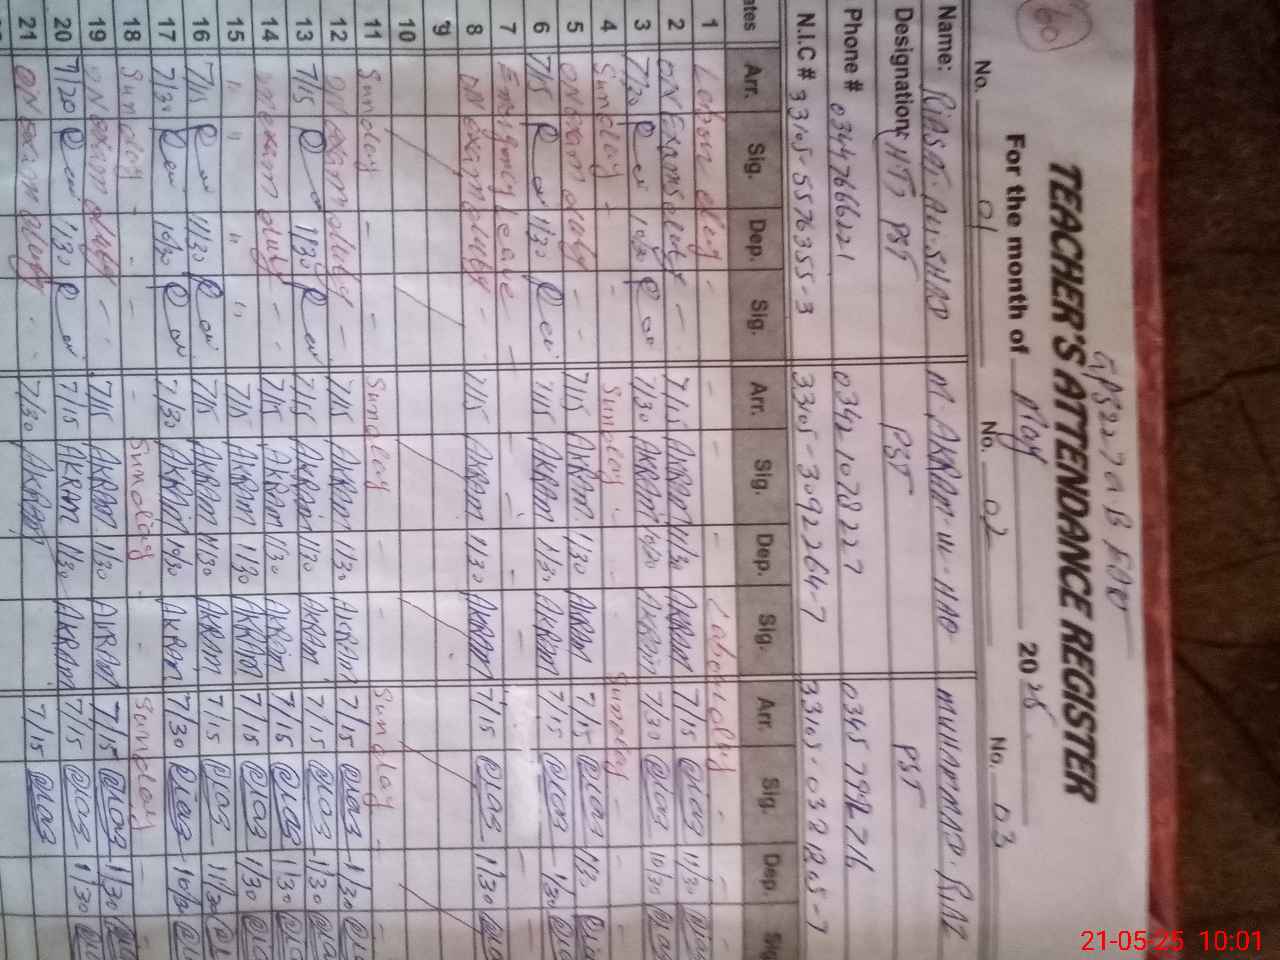 60
GPS 227 GB FSD
TEACHER'S ATTENDANCE REGISTER
For the month of May 2025
No. 01 No. 02 No. 03
Name: RIASAT. ALI. SHAD M. AKRAM-ul-HAQ MUHAMMAD. RIAZ
Designation: PST PST PST
Phone # 03447666221 03421078227 0345 7992716
N.I.C # 33105-5576355-3 33105-3092264-7 33105-0321205-7
ates Arr. Sig. Dep. Sig. Arr. Sig. Dep. Sig. Arr. Sig. Dep. Sig
1 Labour day - - - - Labour day - -
2 ON Exam duty - - 7/15 AKRAM 11/30 AKRAM 7/15 @iaz 11/30 @iaz
3 7/20 10/30 7/30 AKRAM 10/30 AKRAM 7/30 @iaz 10/30 @iaz
4 Sunday - - Sunday - - Sunday - -
5 ON Exam duty - 7/15 AKRAM 1/30 AKRAM 7/15 @iaz 1/30 @iaz
6 7/15 1/30 7/15 AKRAM 1/30 AKRAM 7/15 @iaz - 1/30 @iaz
7 Emergency Leave - - - -
8 ON exam duty - 7/15 AKRAM 1/30 AKRAM 7/15 @iaz 1/30 @iaz
9
10
11 Sunday - - Sunday - - Sunday - -
12 ON exam duty - 7/15 AKRAM 1/30 AKRAM 7/15 @iaz - 1/30 @iaz
13 7/15 1/30 7/15 AKRAM 1/30 AKRAM 7/15 @iaz - 1/30 @iaz
14 ON exam duty - - 7/15 AKRAM 1/30 AKRAM 7/15 @iaz 1/30 @iaz
15 " " " " 7/15 AKRAM 1/30 AKRAM 7/15 @iaz 1/30 @iaz
16 7/15 11/30 7/15 AKRAM 11/30 AKRAM 7/15 @iaz - 11/30 @iaz
17 7/30 10/30 7/30 AKRAM 10/30 AKRAM 7/30 @iaz - 10/30 @iaz
18 Sunday - - - Sunday - - Sunday - -
19 ON exam duty - - 7/15 AKRAM 1/30 AKRAM 7/15 @iaz 1/30 @iaz
20 7/20 1/30 7/15 AKRAM 1/30 AKRAM 7/15 @iaz 1/30 @iaz
21 ON exam duty - - 7/30 AKRAM 7/15 @iaz
21-05-25 10:01